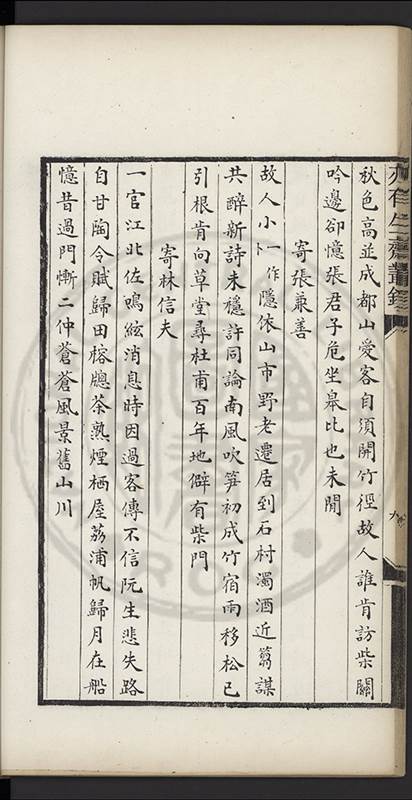 秋色高並成都山愛客自須開竹徑故人誰肯訪柴關
吟邊卻憶張君子危坐皋比也未閒
寄張兼善
故人小一作卜隱依山市野老遷居到石村濁酒近篘謀
共醉新詩未穩許同論南風吹笋初成竹宿雨移松已
引根肯向草堂尋杜甫百年地僻有柴門
寄林信夫
一官江北佐鳴絃消息時因過客傳不信阮生悲失路
自甘陶令賦歸田榕牕茶熟煙栖屋荔浦帆歸月在船
憶昔過門慚二仲蒼蒼風景舊山川